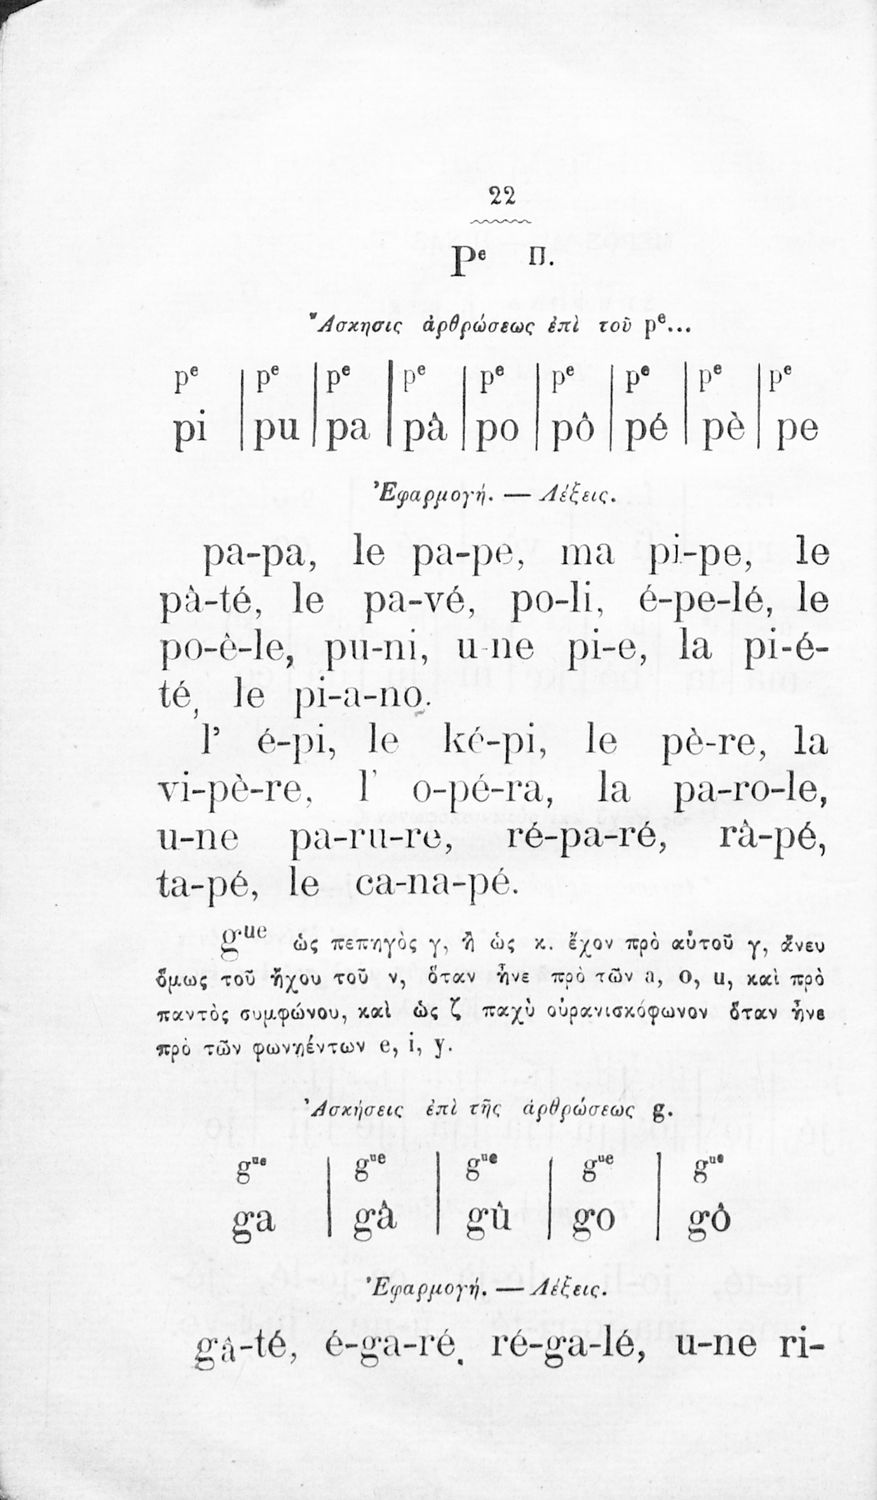 22
pᵉ Π.
Ἄσκησις ἀρθρώσεως ἐπὶ τοῦ pᵉ...
pᵉ | pᵉ | pᵉ | pᵉ | pᵉ | pᵉ | pᵉ | pᵉ | pᵉ
pi | pu | pa | pâ | po | pô | pé | pè | pe
Ἐφαρμογή. — Λέξεις.
pa-pa, le pa-pe, ma pi-pe, le
pâ-té, le pa-vé, po-li, é-pe-lé, le
po-è-le, pu-ni, u-ne pi-e, la pi-é-
té, le pi-a-no.
l' é-pi, le ké-pi, le pè-re, la
vi-pè-re, l' o-pé-ra, la pa-ro-le,
u-ne pa-ru-re, ré-pa-ré, râ-pé,
ta-pé, le ca-na-pé.
gᵘᵉ ὡς πεπηγὸς γ, ἢ ὡς κ. ἔχον πρὸ αὐτοῦ γ, ἄνευ
ὅμως τοῦ ἤχου τοῦ ν, ὅταν ἦνε πρὸ τῶν a, o, u, καὶ πρὸ
παντὸς συμφώνου, καὶ ὡς ζ παχὺ οὐρανισκόφωνον ὅταν ἦνε
πρὸ τῶν φωνηέντων e, i, y.
Ἀσκήσεις ἐπὶ τῆς ἀρθρώσεως g.
gᵘᵉ | gᵘᵉ | gᵘᵉ | gᵘᵉ | gᵘᵉ
ga | gâ | gû | go | gô
Ἐφαρμογή. — Λέξεις.
gâ-té, é-ga-ré, ré-ga-lé, u-ne ri-